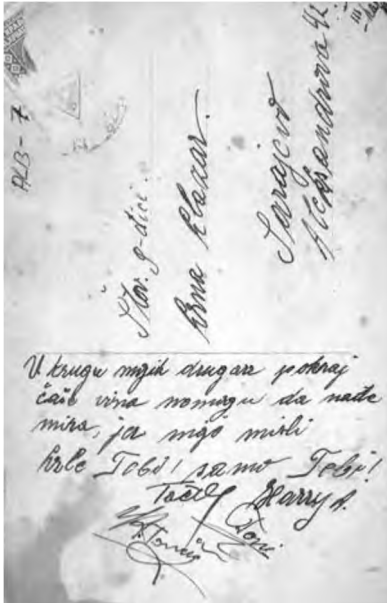 ALB-7
Štov. g-đici.
Erna Klazar.
Sarajevo
Aleksandrova 42
U krugu mojih drugara pokraj
čaše vina nemogu da nađe
mira, ja moje misli
hrle Tebi! samo Tebi!
Harry A.